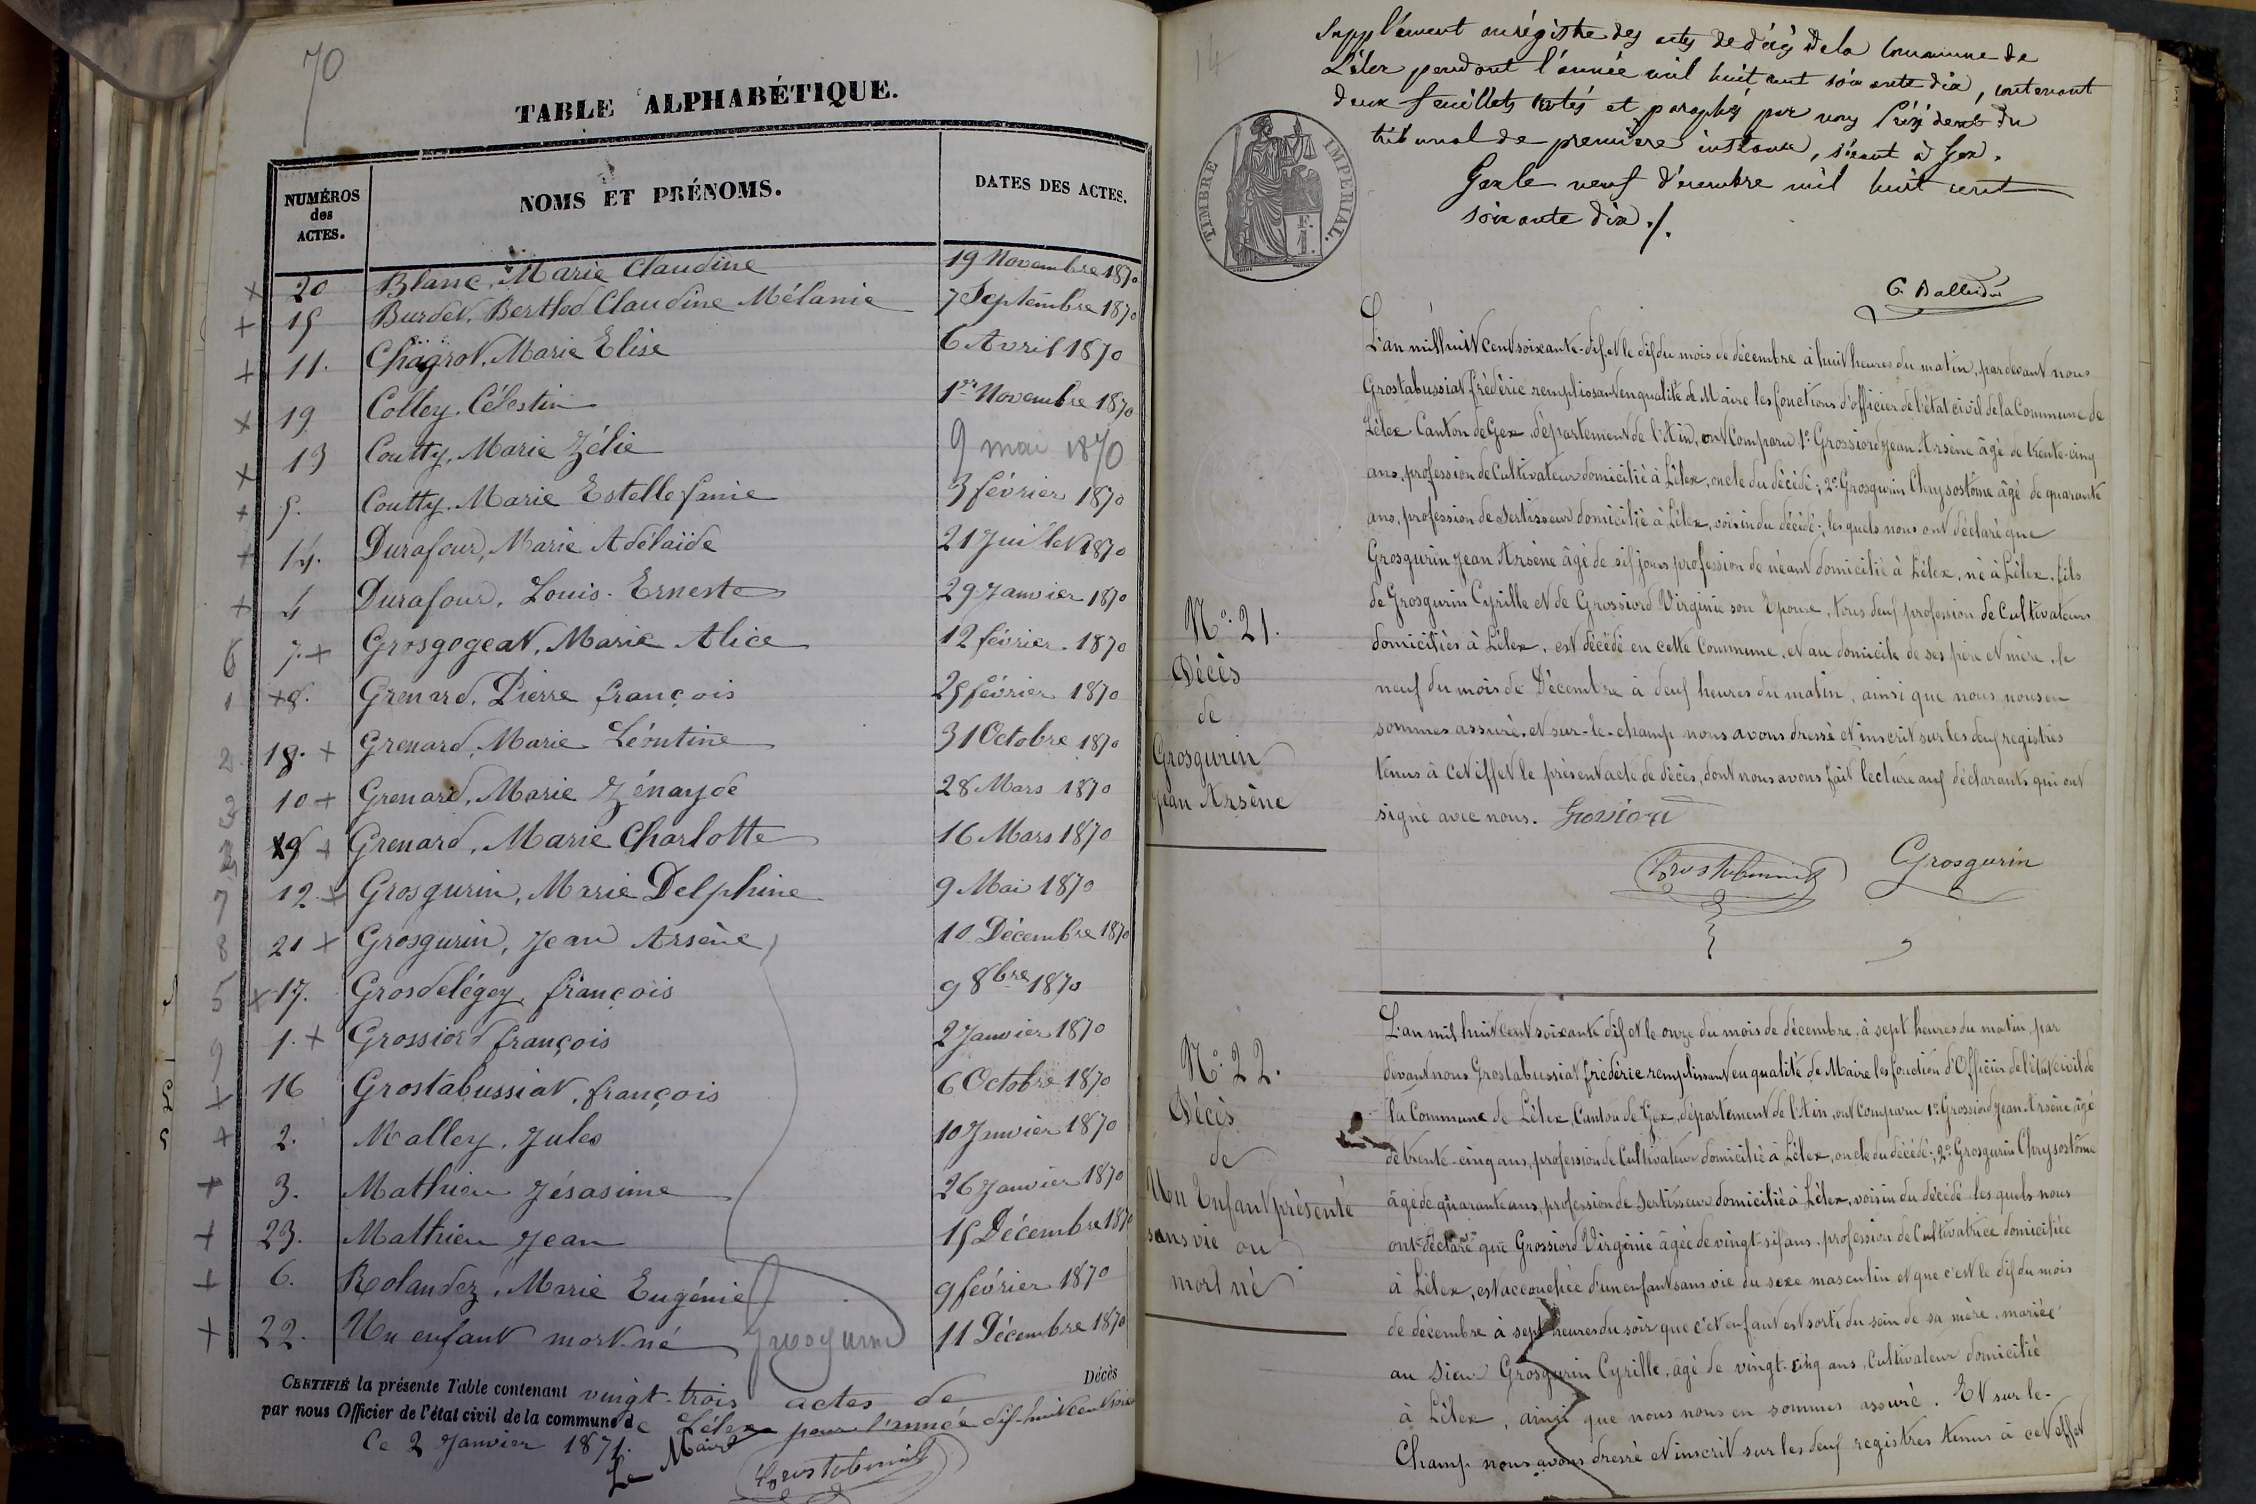 70
TABLE ALPHABÉTIQUE.
NUMÉROS des ACTES. NOMS ET PRÉNOMS. DATES DES ACTES.
+ 20 Blanc, Marie Claudine 19 Novembre 1870
+ 15 Burdet, Berthod Claudine Mélanie 7 Septembre 1870
+ 11. Chagrot, Marie Elise 6 Avril 1870
x 19 Colley, Célestin 1er Novembre 1870
x 13 Coutty, Marie Zélie 9 mai 1870
+ 5. Coutty, Marie Estelle fanie 3 février 1870
+ 14. Durafour, Marie Adélaïde 21 Juillet 1870
+ 4 Durafour, Louis Erneste 29 Janvier 1870
6 7. + Grosgogeat, Marie Alice 12 février 1870
1 + 8. Grenard, Pierre françois 25 février 1870
2 18. + Grenard, Marie Léontine 31 Octobre 1870
3 10 + Grenard, Marie Zénayde 28 Mars 1870
9 + Grenard, Marie Charlotte 16 Mars 1870
7 12 + Grosgurin, Marie Delphine 9 Mai 1870
8 21 + Grosgurin, Jean Arsène 10 Décembre 1870
5 x 17. Grosdelégey, françois 9 8bre 1870
9 1. + Grossiord françois 2 Janvier 1870
+ 16 Grostabussiat, françois 6 Octobre 1870
+ 2. Malley, Jules 10 Janvier 1870
+ 3. Mathieu Jésasime 26 Janvier 1870
+ 23. Mathieu Jean 15 Décembre 1870
+ 6. Rolandez, Marie Eugénie 9 février 1870
+ 22. Un enfant mort-né Grosgurin 11 Décembre 1870
CERTIFIÉ la présente Table contenant vingt-trois actes de Décès
par nous Officier de l'état civil de la commune de Lélex pour l'année dix-huit cent
Ce 2 Janvier 1871.
Le Maire
14
Supplément au régistre des actes de décès de la Commune de
Lélex pendant l'année mil huit cent soixante dix, contenant
deux feuillets cotés et paraphés par nous Président du
tribunal de première instance, séant à Gex.
Gex le neuf décembre mil huit cent
soixante dix ./.
TIMBRE IMPÉRIAL.
1 F.
L'an mil huit cent soixante-dix et le dix du mois de décembre à huit heures du matin, par devant nous
Grostabussiat frédéric remplissant en qualité de Maire les fonctions d'officier de l'état civil de la Commune de
Lélex Canton de Gex, département de l'Ain, ont Comparu 1º Grossiord Jean Arsène âgé de trente-cinq
ans, profession de Cultivateur domicilié à Lélex, oncle du décédé; 2º Grosgurin Chrysostôme âgé de quarante
ans, profession de Sertisseur domicilié à Lélex, voisin du décédé; les quels nous ont déclaré que
Grosgurin Jean Arsène âgé de six jours profession de néant domicilié à Lélex, né à Lélex, fils
de Grosgurin Cyrille et de Grossiord Virginie son Epouse, tous deux profession de Cultivateurs
domiciliés à Lélex, est décédé en cette Commune, et au domicile de ses père et mère, le
neuf du mois de Décembre à deux heures du matin, ainsi que nous nous en
sommes assuré, et sur-le-champ nous avons dressé et inscrit sur les deux registres
tenus à cet effet le présent acte de décès, dont nous avons fait lecture aux déclarants qui ont
signé avec nous. Grossiord
Grosgurin
Nº. 21.
Décès
de
Grosgurin
Jean Arsène
L'an mil huit cent soixante dix et le onze du mois de décembre, à sept heures du matin, par
devant nous Grostabussiat frédéric remplissant en qualité de Maire les fonction d'Officier de l'état civil de
la Commune de Lélex, Canton de Gex, département de l'Ain, ont Comparu 1º Grossiord Jean Arsène âgé
de trente-cinq ans, profession de Cultivateur domicilié à Lélex, oncle du décédé; 2º Grosgurin Chrysostôme
âgé de quarante ans, profession de Sertisseur domicilié à Lélex, voisin du décédé les quels nous
ont déclaré que Grossiord Virginie âgée de vingt-six ans, profession de Cultivatrice domiciliée
à Lélex, est accouchée d'un enfant sans vie du sexe masculin et que c'est le dix du mois
de décembre à sept heures du soir que cet enfant est sorti du sein de sa mère, mariée
au Sieur Grosgurin Cyrille, âgé de vingt-cinq ans, Cultivateur domicilié
à Lélex, ainsi que nous nous en sommes assuré. Et sur-le-
Champ nous avons dressé et inscrit sur les deux registres tenus à cet effet
Nº. 22.
Décès
de
Un Enfant présenté
sans vie ou
mort né